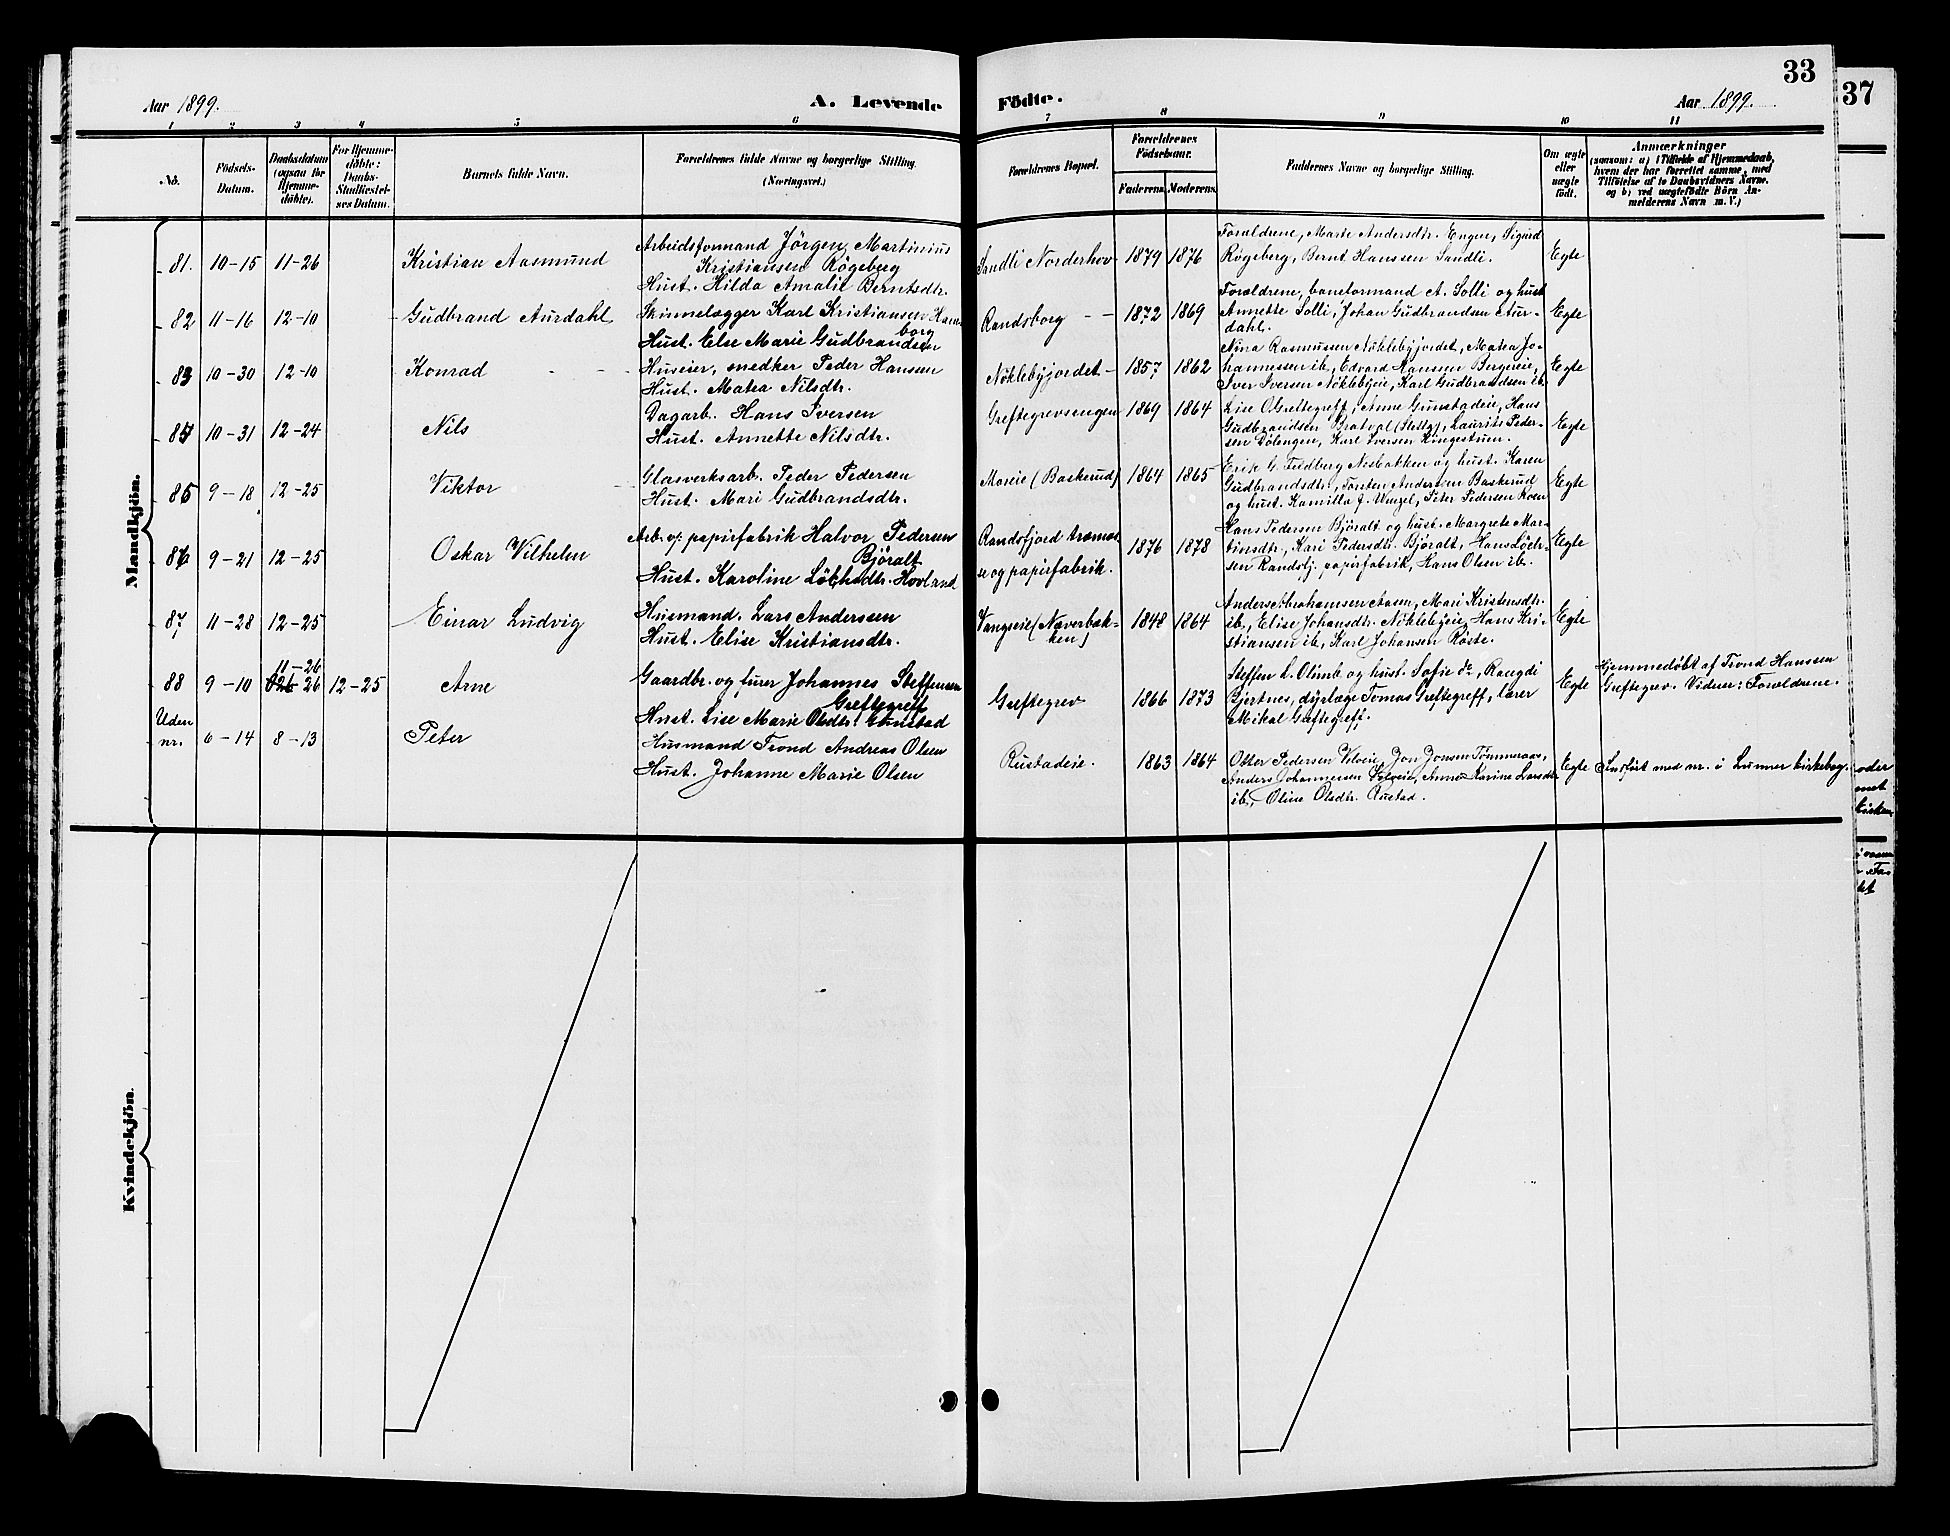 33
37
Aar 1899.
A. Levende Födte.
Aar 1899.
1 2 3 4 5 6 7 8 9 10 11
No.
Födsels-
Datum.
Daabsdatum
(ogsaa for
Hjemme-
döbte).
For Hjemme-
döbte:
Daabs-
Stadfæstel-
ses Datum.
Barnets fulde Navn.
Forældrenes fulde Navne og borgerlige Stilling.
(Næringsvei.)
Forældrenes Bopæl.
Forældrenes
Födselsaar.
Faderens. Moderens.
Faddernes Navne og borgerlige Stilling.
Om ægte
eller
uægte
født.
Anmærkninger
(saasom: a) i Tilfælde af Hjemmedaab,
hvem der har forrettet samme, med
Tilföielse af to Daabsvidners Navne,
og b) ved uægtefödte Börn An-
melderens Navn m. V.)
Mandkjön.
81. 10-15 11-26 Kristian Aasmund
Arbeidsformand Jörgen Martinius
Kristiansen Rögeberg
Hust. Hilda Amalie Berntsdtr.
Sandli Norderhov 1879 1876
Forældrene, Marte Andersdtr. Enger, Sigurd
Røgeberg, Bernt Hanssen Sandli.
Egte
82 11-16 12-10 Gudbrand Aurdahl
Skinnelægger Karl Kristiansen Hans-
borg
Hust. Else Marie Gudbrandsen
Randsborg 1872 1869
Forældrene, baneformand A. Solli og hust
Annette Solli, Johan Gudbrandsen Aur-
dahl.
Egte
83 10-30 12-10 Konrad
Huseier, snedker Peder Hansen
Hust. Matea Nilsdtr.
Nöklebyjordet 1857 1862
Nina Rasmussen Nöklebyjordet, Matea Jo-
hannessen ib., Edvard Hanssen Bergseie,
Iver Iversen Nöklebyeie, Karl Gudbrandsen ib.
Egte
84 10-31 12-24 Nils
Dagarb. Hans Iversen
Hust. Annette Nilsdtr.
Greftegrevsengen 1869 1864
Lise O. Greftegreff, Anne Gunstadeie, Hans
Gudbrandsen Bratval, Laurits Peder-
sen Dölengen, Karl Iversen Ringestuen.
Egte
85 9-18 12-25 Viktor
Glasverksarb. Peder Pedersen
Hust. Mari Gudbrandsdtr.
Moreie (Baskerud) 1864 1865
Erik G. Feldberg Nesbakken og hust. Karen
Gudbrandsdtr, Torsten Andersen Baskerud
og hust. Kamilla J. Wenzel, Peter Pedersen Roen
Egte
86 9-21 12-25 Oskar Vilhelm
Arb. v/ papirfabrik Halvor Pedersen
Björalt
Hust. Karoline Löchsdtr. Hovland
Randsfjord træmas-
se og papirfabrik. 1876 1878
Hans Pedersen Björalt og hust. Margrete Mar-
tinsdtr., Kari Pedersdtr. Björalt, Hans Löch-
sen Randsfj. papirfabrik, Hans Olsen ib.
Egte
87 11-28 12-25 Einar Ludvig
Husmand. Lars Anderssen
Hust. Elise Kristiansdtr.
Vangseie (Naverbak-
ken) 1848 1864
Anders Abrahamsen Aasen, Mari Kristensdtr.
ib., Elise Johansdtr. Nöklebyeie, Hans Kri-
stiansen ib., Karl Johansen Röste.
Egte
88 9-10 11-26 26 12-25 Arne
Gaardbr. og lærer Johannes Steffensen
Greftegreff
Hust. Lise Marie Olsdtr. Gunstad
Greftegrev 1866 1873
Steffen L. Olimb og hust. Sofie do, Rangdi
Bjertnes, dyrlæge Tomas Greftegreff, lærer
Mikal Greftegreff.
Egte
Hjemmedøbt af Trond Hanssen
Greftegrev. Vidner: Forældrene.
Uden
nr. 6-14 8-13 Peter
Husmand Trond Andreas Olsen
Hust. Johanne Marie Olsen
Rustadeie. 1863 1864
Otter Pedersen Velseie, Jon Jonsen Tømmeraas,
Anders Johannesen Velseie, Anne Karine Larsdtr.
ib., Oline Olsdtr. Rustad.
Egte
Indført med nr. i Lunner kirkebog.
Kvindekjön.